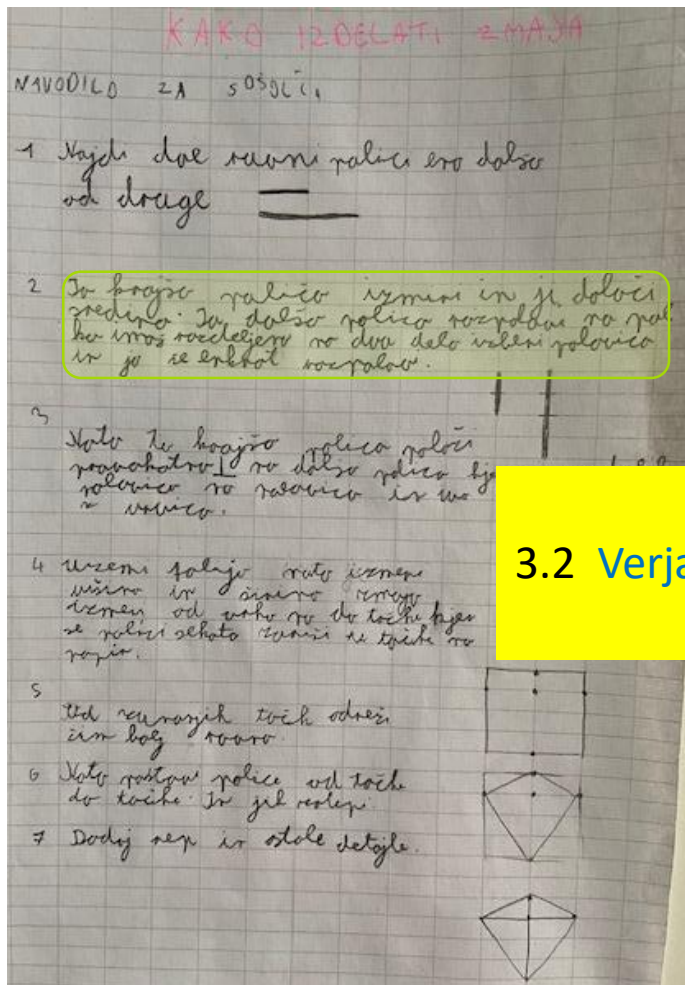 KAKO IZDELATI ZMAJA
NAVODILO ZA SOŠOLCI
1 Najdi dve ravni palici eno daljšo
od druge
2 To krajšo palico izmeri in ji določi
sredino. To daljšo palico razpolovi
ko imaš razdeljeno na dva dela izberi polovico
in jo še enkrat razpolovi.
3
Nato to krajšo palico položi
pravokotno na daljšo palico kje
polovico na polovico
4 Vzemi folijo nato izmeri
višino in širino zmaja
izmeri od vrha do točke kjer
se palici sekata točke na
papir.
5
Od zunanjih točk odreži
čim bolj ravno.
6 Nato postavi palice od točke
do točke. In jih zalepi.
7 Dodaj rep in ostale detajle.
3.2 Verja